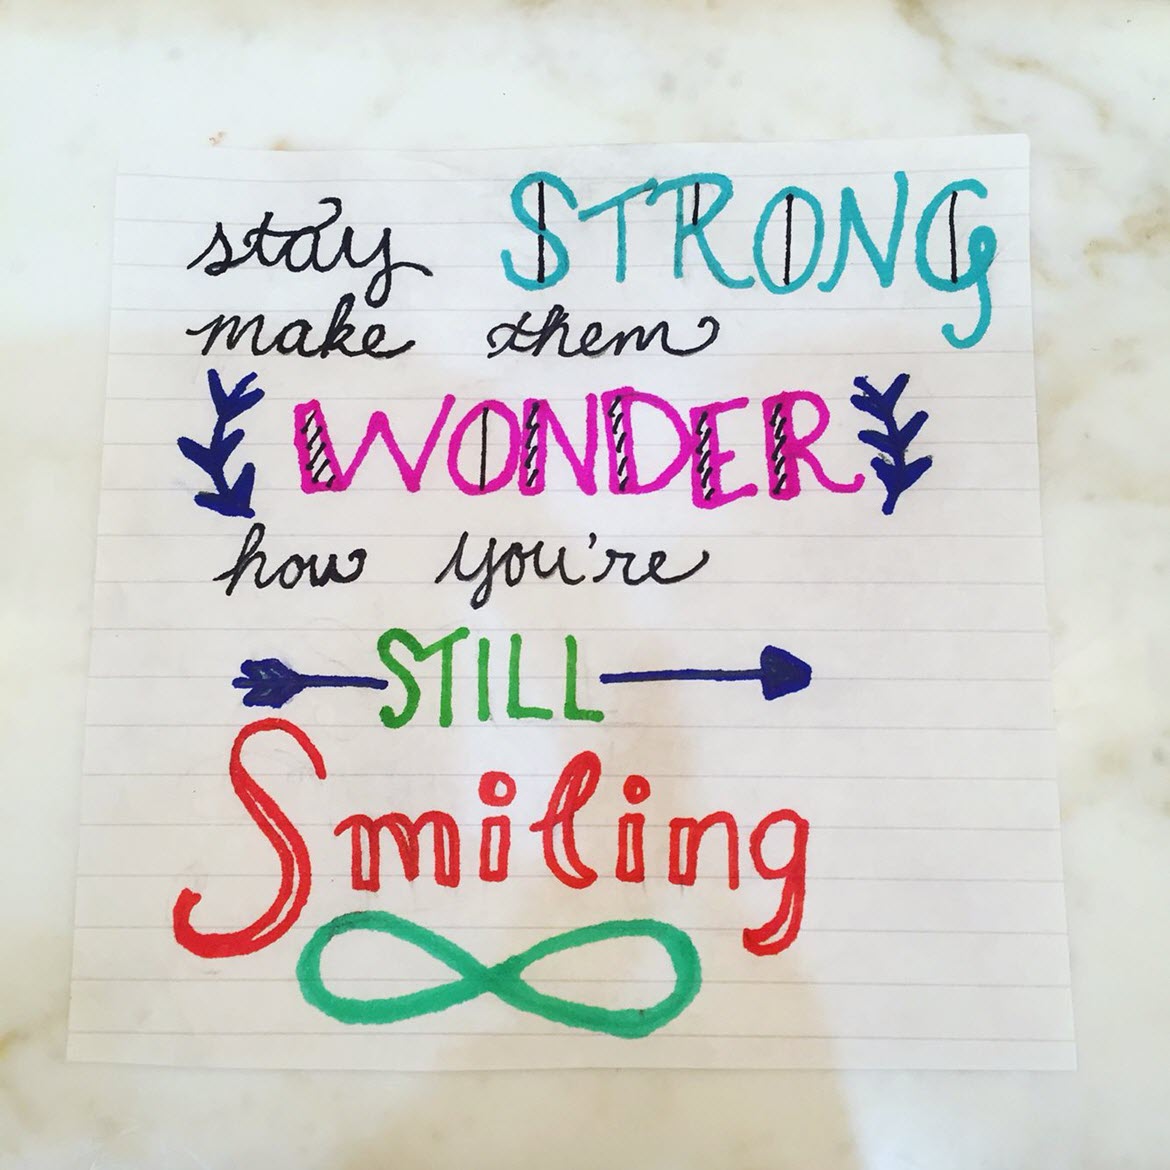 stay STRONG
make them
WONDER
how you're
STILL
Smiling